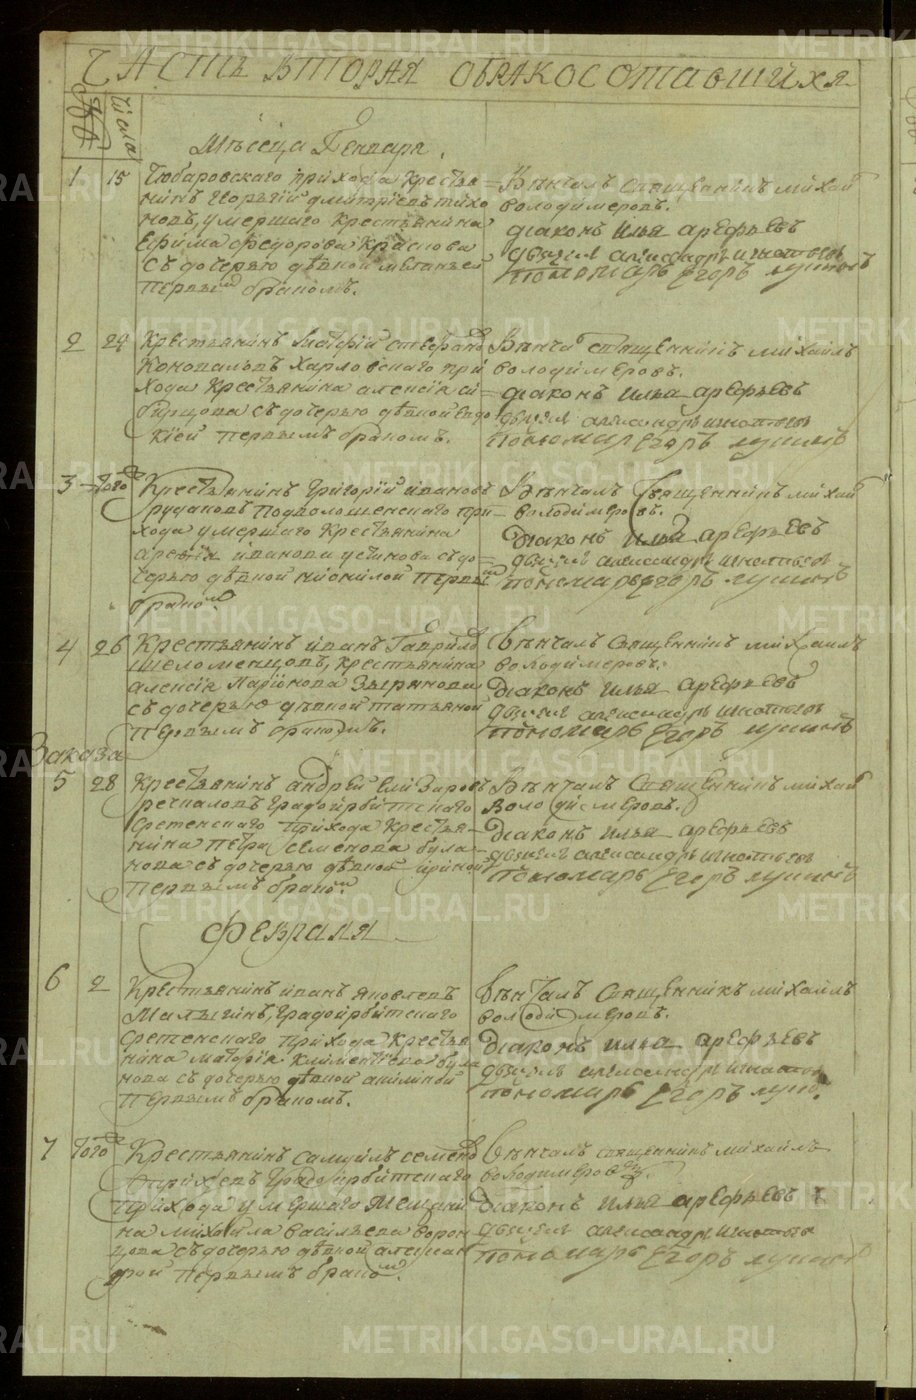 ЧАСТЬ ВТОРАЯ ОБРАКОСОТАВШИХЯ
Числа
Мѣсеца Генваря
1 15 приходa Крестья=
нинъ Георгiй дмитрiевъ тихо
новъ, умершаго крестьянина
Ефима федорова Краснова
съ дочерью дѣвкой меланьей
первымъ бракомъ.
Вѣнчалъ священникъ михаи
володимеровъ.
дiаконъ илья арефьевъ
дьячек александръ игнатьев
пономарь Егоръ
2 24 Крестьянинъ стефано
Коноваловъ Харловскаго при
хода крестьянина алексiя си=
бирцова съ дочерью дѣвкой Евдо
кiей первымъ бракомъ.
Вѣнча священникъ михаилъ
володимеровъ.
дiаконъ илья арефьевъ
дьячек александръ игнатьев
пономарь Егоръ
3 того Крестьянинъ григорiй ивановъ
рудаковъ при=
хода умершаго крестьянина
ивановa устинова съ до=
черью дѣвкой первы
бракo
Вѣнчалъ Священникъ михаи
володимеровъ.
дiаконъ илья арефьевъ
дьячек александръ игнатьев
пономарь Егоръ
4 26 Крестьянинъ иванъ Гаврило
Шеломенцовъ, крестьянина
алексiя Ларiонова Зырянова
съ дочерью дѣвкой татьяной
первымъ бракомъ.
Вѣнчалъ Священникъ михаилъ
володимеровъ.
дiаконъ илья арефьевъ
дьячек александръ игнатьев
пономарь Егоръ
Заказа
5 28 Крестьянинъ андрей Елизаровъ
речкаловъ градоирбитскаго
Сретенскаго прихода крестья=
нина петра Семенова була=
нова съ дочерью дѣвкой ириной
первымъ брако
Вѣнчалъ Священникъ михаи
володимеровъ.
дiаконъ илья арефьевъ
дьячек александръ игнатьев
пономарь Егоръ
февраля
6 2 Крестьянинъ иванъ яковлевъ
Малыгинъ, градоирбитскаго
Сретенскаго прихода крестья
нина Климентiева була
нова съ дочерью дѣвкой акилиной
первымъ бракомъ.
Вѣнчалъ Священникъ михаилъ
володимеровъ.
дiаконъ илья арефьевъ
дьячекъ александръ игнатьев
пономарь Егоръ
7 того Крестьянинъ самуилъ семено
градоирбитскаго
прихода умершаго мещани
на михаила васильева ворон
цова съ дочерью дѣвкой алексан
дрой первымъ брако
Вѣнчалъ священникъ михаилъ
володимеров.
дiаконъ илья арефьевъ
дьячек александръ игнатьев
пономарь Егоръ
METRIKI.GASO-URAL.RU